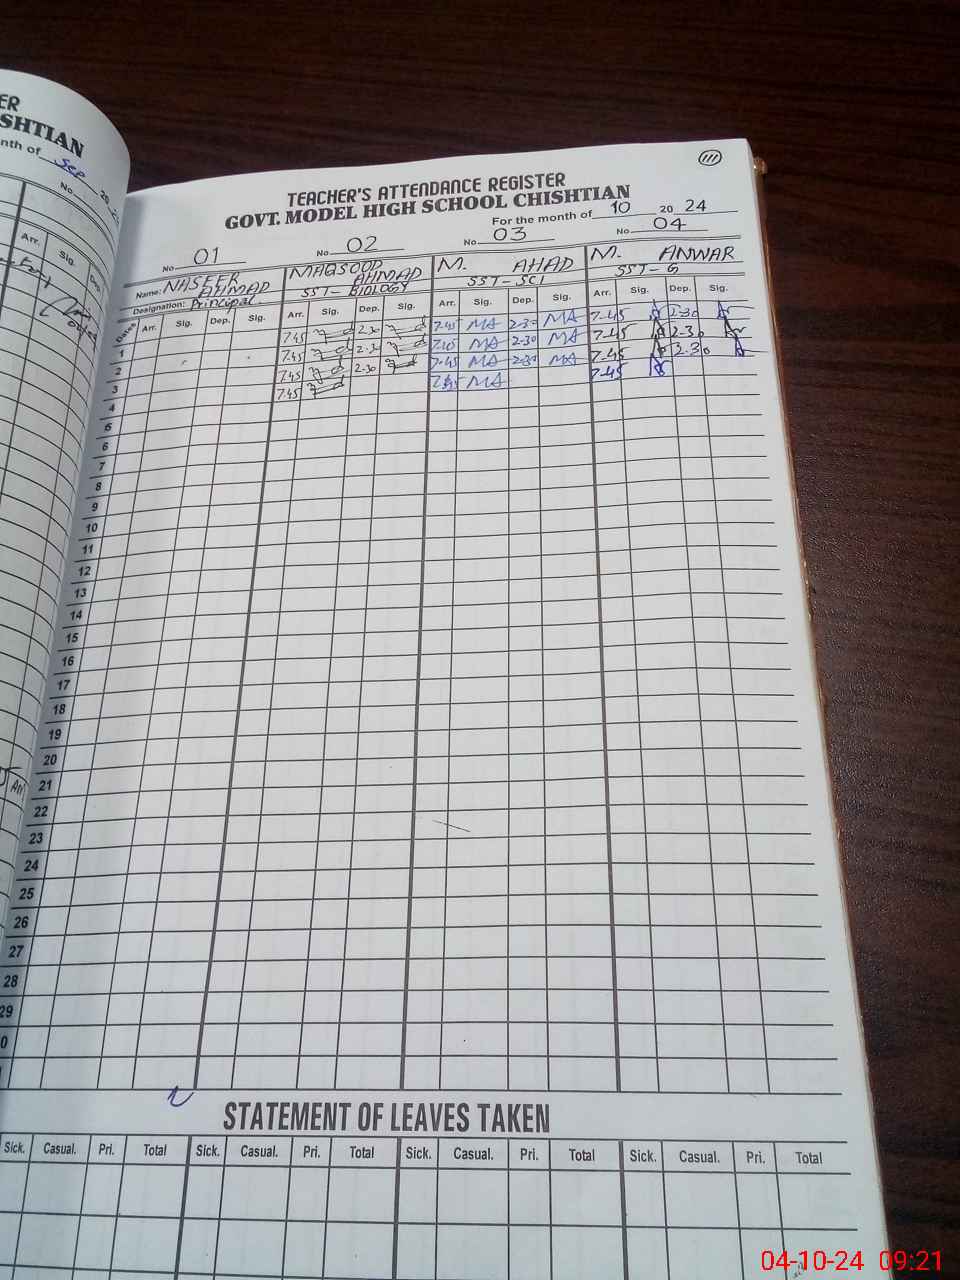 ER
SHTIAN
nth of Sep 20
No.
Arr. Sig. Dep.
111
TEACHER'S ATTENDANCE REGISTER
GOVT. MODEL HIGH SCHOOL CHISHTIAN
For the month of 10 20 24
No. 01 No. 02 No. 03 No. 04
Name: NASEER AHMAD MAQSOOD AHMAD M. AHAD M. ANWAR
Designation: Principal SST-BIOLOGY SST-SCI SST-G
Dates Arr. Sig. Dep. Sig. Arr. Sig. Dep. Sig. Arr. Sig. Dep. Sig. Arr. Sig. Dep. Sig.
1 7.45 2.30 7.45 MA 2-30 MA 7-45 2-30
2 7.45 2.30 7.45 MA 2-30 MA 7-45 2-30
3 7.45 2-30 7-45 MA 2-30 MA 7-45 2.30
4 7.45 7.45 MA 7-45
5
6
7
8
9
10
11
12
13
14
15
16
17
18
19
20
21
22
23
24
25
26
27
28
29
0
STATEMENT OF LEAVES TAKEN
Sick. Casual. Pri. Total Sick. Casual. Pri. Total Sick. Casual. Pri. Total Sick. Casual. Pri. Total
04-10-24 09:21